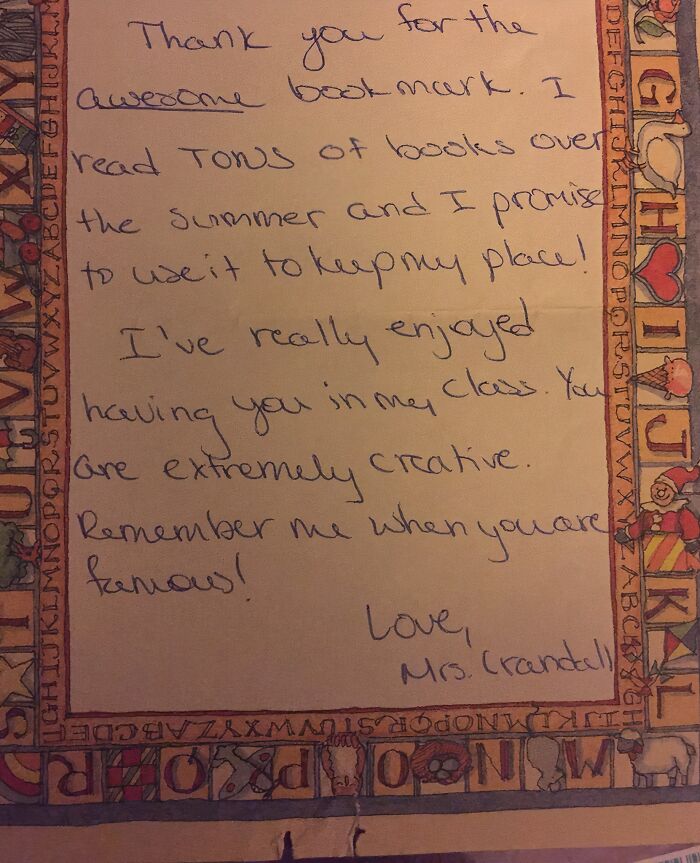 Thank you for the
awesome bookmark. I
read TONS of books over
the summer and I promise
to use it to keep my place!
I've really enjoyed
having you in my class. You
are extremely creative.
Remember me when you are
famous!
Love,
Mrs. Crandall